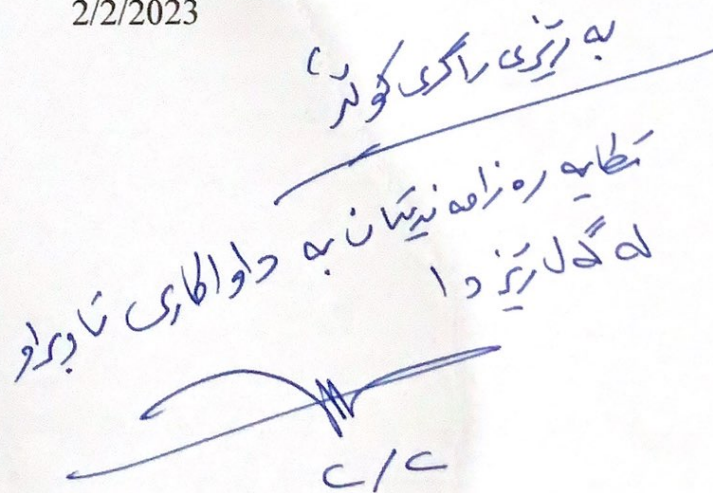 2/2/2023
بە ڕێزی ڕاگری کۆلێژ
تکایە ڕەزامەندیتان بە داواکاری ناوبراو
لە گەڵ ڕێزدا
٢/٢